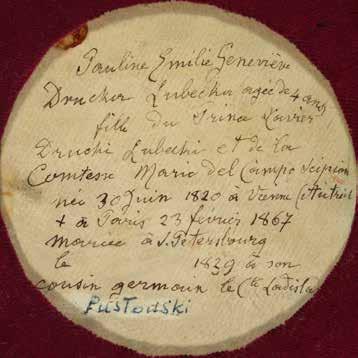 Pauline Emilie Geneviève
Drucka Lubecka agée de 4 ans
fille du Prince Xavier
Drucki Lubecki et de la
Comtesse Marie del Campo Scipion
née 30 Juin 1820 à Vienne (Autriche
+ à Paris 23 février 1867
mariée à S. Petersbourg
le 1839 à son
cousin germain le Cte Ladislas
PUSŁOWSKI